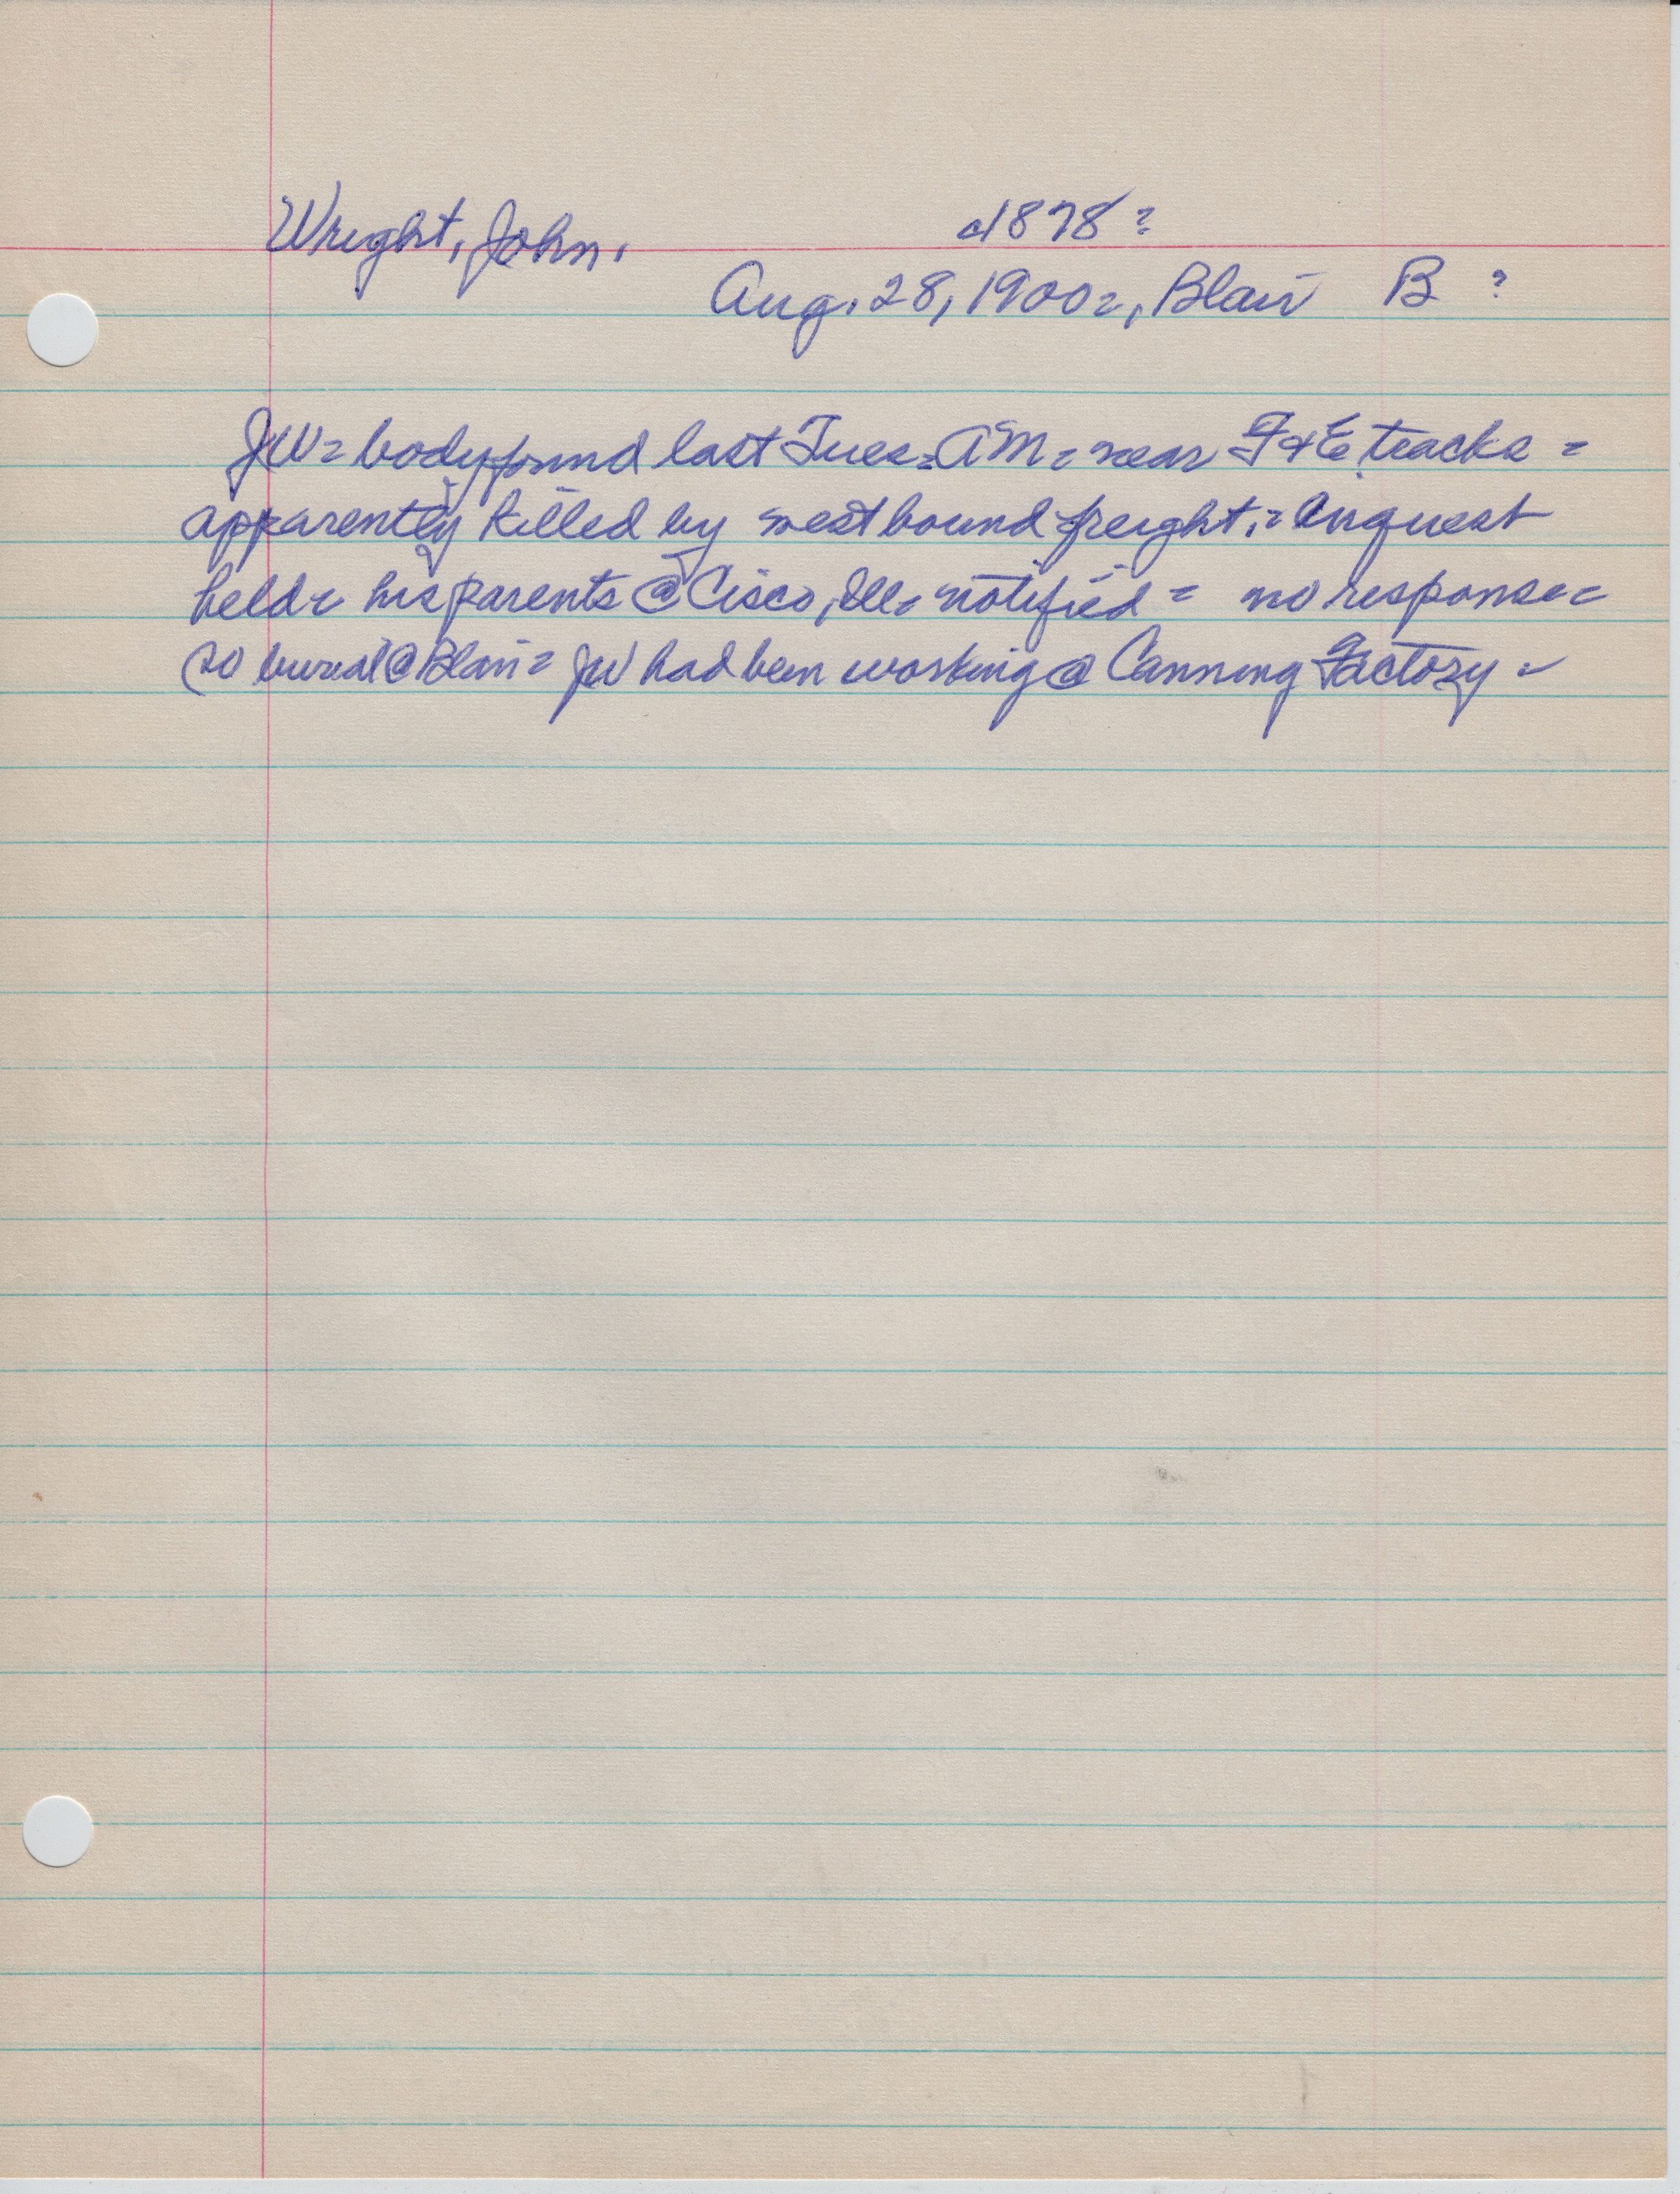 Wright, John. c1878?
Aug. 28, 1900=, Blair B ?
JW= body found last Tues= AM= near F&E tracks =
apparently killed by westbound freight.= inquest
held= his parents @ Cisco, Ill= notified = no response=
so burial @ Blair= JW had been working @ Canning Factory =